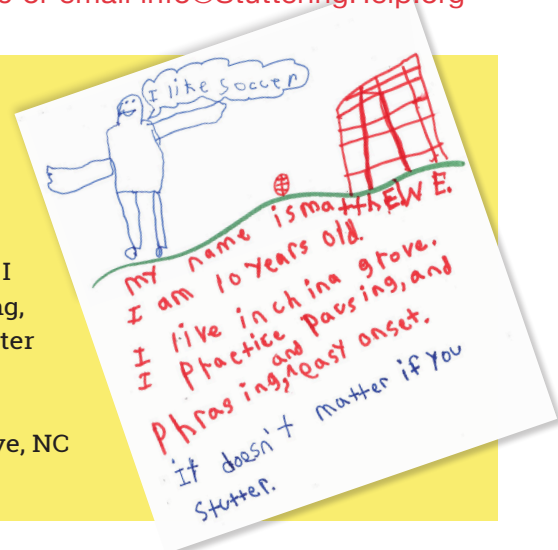 or email info@StutteringHelp.org
I like soccer
my name is matthEW E.
I am 10 years old.
I live in china grove.
I practice pausing, and
Phrasing, and easy onset.
it doesn't matter if you
Stutter.
I
ng,
ter
ve, NC